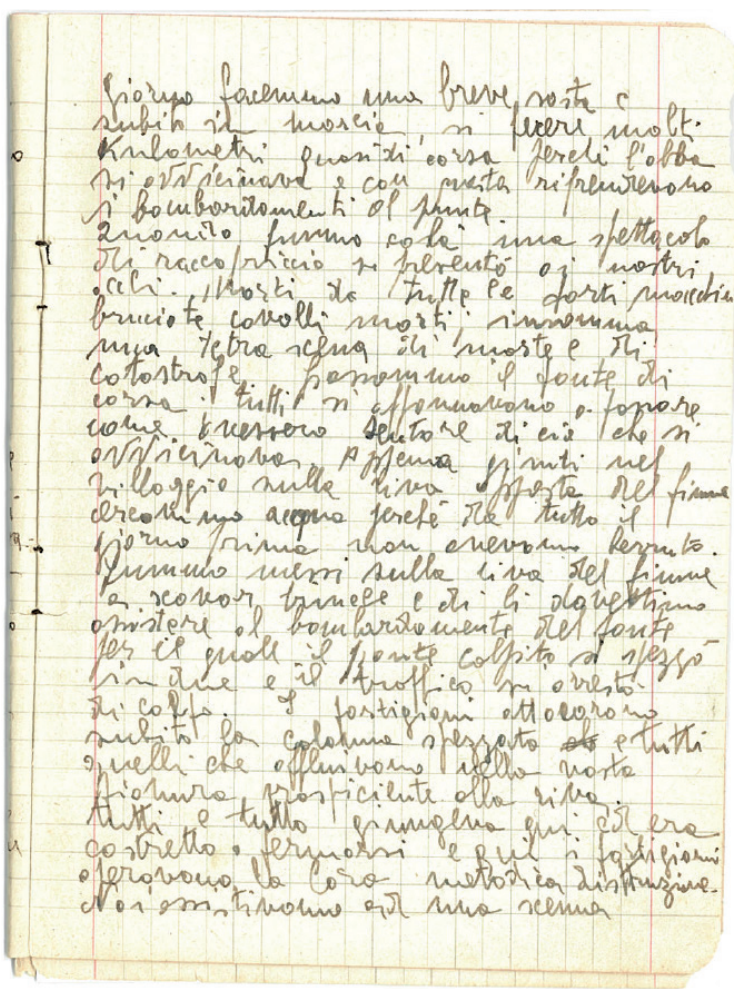 giorno facemmo una breve sosta e
subito in marcia, si fecere molti
Kilometri quasi di corsa perché l'alba
si avvicinava e con essa riprendevano
i bombardamenti al ponte.
Quando fummo colà una spettacolo
di raccapriccio si presentò ai nostri
occhi. Morti da tutte le parti macchine
bruciate cavalli morti, insomma
una tetra scena di morte e di
catastrofe. Passammo il ponte di
corsa. tutti si affannavano a passare
come avessero sentore di ciò che si
avvicinava. Appena giunti nel
villaggio sulla riva opposta del fiume
cercammo acqua perché da tutto il
giorno prima non avevamo bevuto.
Fummo messi sulla riva del fiume
a scavar trincee e di lì dovettimo
assistere al bombardamento del ponte
per il quale il ponte colpito si spezzò
in due e il traffico si arrestò
di colpo. I partigiani attaccarono
subito la colonna spezzata e tutti
quelli che affluivano nella vasta
pianura prospiciente alla riva.
tutti e tutto giungeva qui ed era
costretto a fermarsi e qui i partigiani
operavano la loro metodica distruzione.
Noi assistivamo ad una scenna